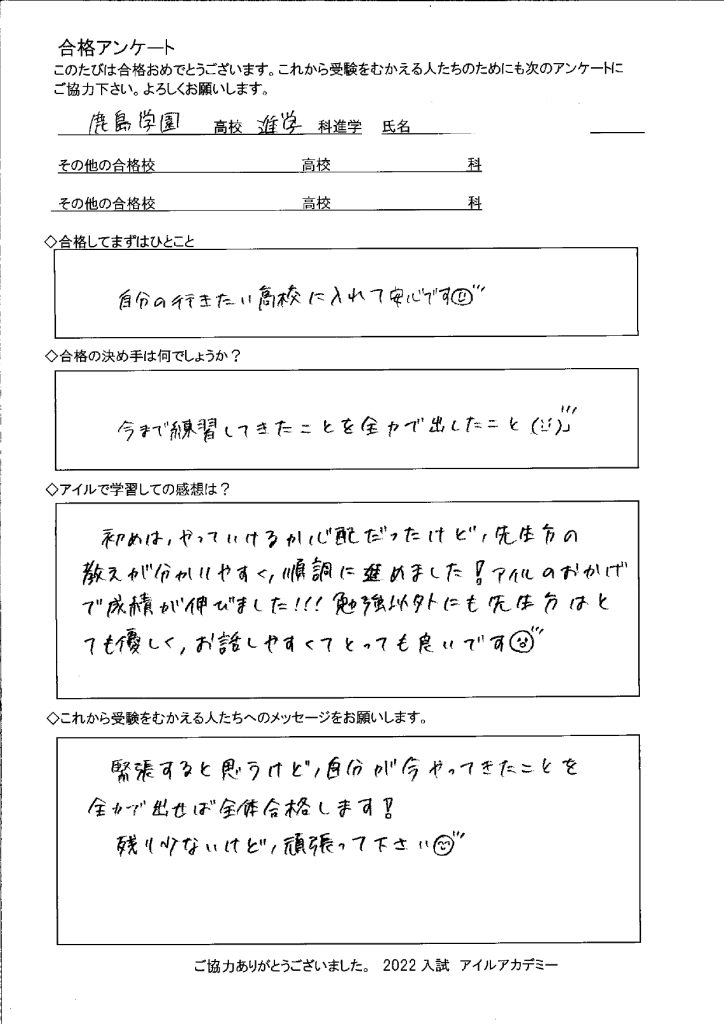 合格アンケート
このたびは合格おめでとうございます。これから受験をむかえる人たちのためにも次のアンケートに
ご協力下さい。よろしくお願いします。
鹿島学園 高校 進学 科進学 氏名
その他の合格校 高校 科
その他の合格校 高校 科
◇合格してまずはひとこと
自分の行きたい高校に入れて安心です
◇合格の決め手は何でしょうか？
今まで練習してきたことを全力で出したこと
◇アイルで学習しての感想は？
初めは、やっていけるか心配だったけど、先生方の
教えが分かりやすく、順調に進めました！アイルのおかげ
で成績が伸びました!!!勉強以外にも先生方はと
ても優しく、お話しやすくてとっても良いです
◇これから受験をむかえる人たちへのメッセージをお願いします。
緊張すると思うけど、自分が今やってきたことを
全力で出せば全体合格します！
残り少ないけど、頑張って下さい
ご協力ありがとうございました。 2022入試 アイルアカデミー